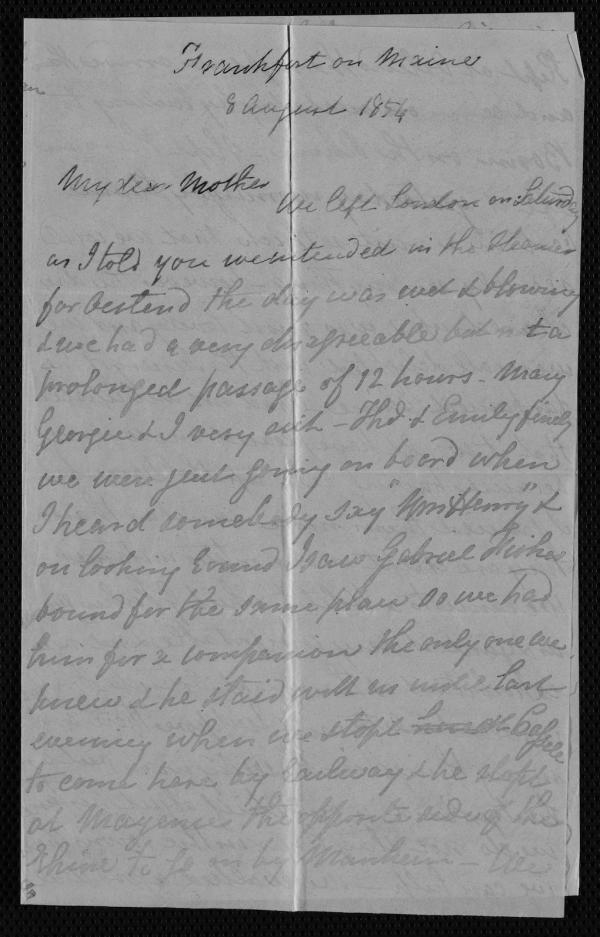 Frankfort on Maine
8 August 1854
My dear Mother
We left London on Saturday
as I told you we intended in the steamer
for Ostend the day was wet & blowing
& we had a very disagreeable but not a
prolonged passage of 12 hours - Mary
Georgie & I very sick - Thd & Emily finely
we were just going on board when
I heard somebody say "Wm Henry" &
on looking round I saw Gabriel Fisher
bound for the same place so we had
him for a companion the only one we
knew & he staid with us until last
evening when we stopt at
to come here by railway & he stopt
at Mayence the opposite side of the
Rhine to go on by Manheim - We